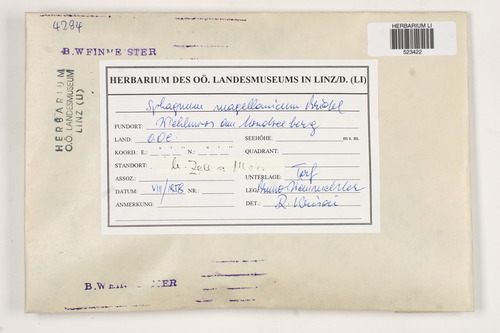 4294
HERBARIUM LI
523422
B. WEINMEISTER
HERBARIUM
O.Ö. LANDESMUSEUM
LINZ (LI)
HERBARIUM DES OÖ. LANDESMUSEUMS IN LINZ/D. (LI)
Sphagnum magellanicum Bridel
FUNDORT: am Mondseeberg
LAND: OÖ. SEEHÖHE: m s.m.
KOORD.: E: ° ' " N: ° ' " QUADRANT:
STANDORT:
ASSOZ.: UNTERLAGE: Torf
DATUM: VIII/ NR.: LEG.: Bruno Weinmeister
ANMERKUNG: DET.: R. Krisai
B. WEINMEISTER